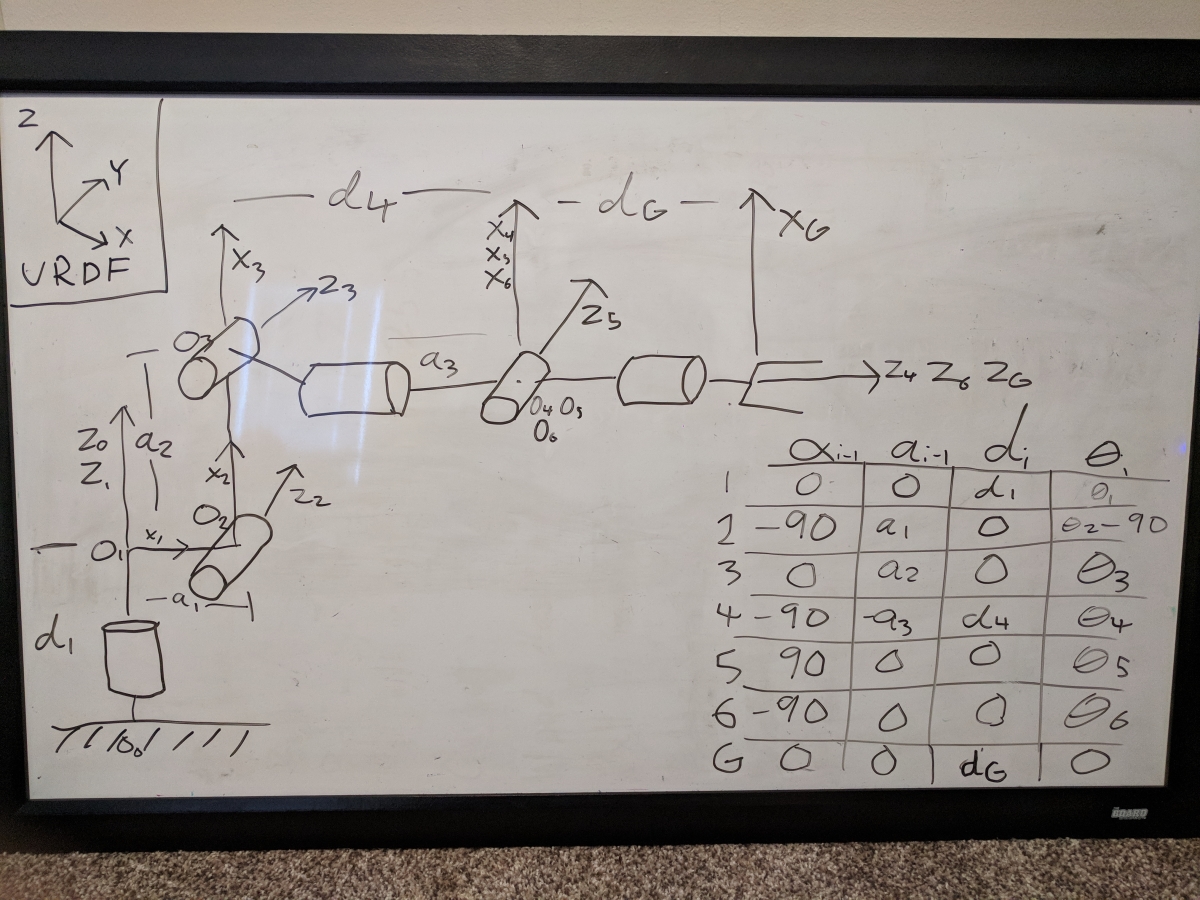 Z
Y
X
URDF
d4
dG
X3
Z3
X4
X5
X6
XG
O3
a3
Z5
Z4 Z6 ZG
O4 O5
O6
Z0
Z1
a2
X2
Z2
O2
O1
X1
a1
d1
O0
αi-1 ai-1 di θi
1 0 0 d1 θ1
2 -90 a1 0 θ2-90
3 0 a2 0 θ3
4 -90 -a3 d4 θ4
5 90 0 0 θ5
6 -90 0 0 θ6
G 0 0 dG 0
BOARD